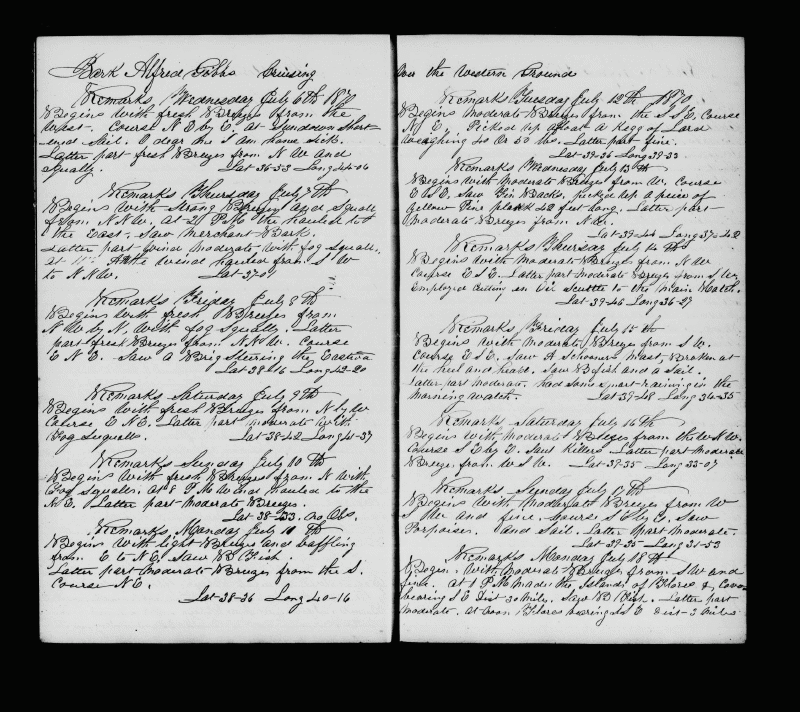 Bark Alfred Gibbs Cruising
Remarks, Wednesday July 6th 1870
Begins with fresh Breezes from the
West. Course N E by E. at Sundown Short
end Sail. O dear me I am home sick.
Latter part fresh Breezes from N W and
squally. Lat 36-53 Long 44-06
Remarks Thursday July 7th
Begins with strong Breezes and squall
from N.N.W. at 2 P.M. the hauled to
the East. Saw Merchant Bark.
Latter part fowind moderate with fog squall.
at 11 the wind hauled from S W
to N.N.W. Lat 37-01
Remarks Friday July 8th
Begins with fresh Breezes from
N W by N. With fog Squally. Latter
part fresh Breezes from N.N.W. Course
E N E. Saw a Brig Steering the Eastw
Lat 38-16 Long 42-20
Remarks Saturday July 9th
Begins with fresh Breezes from N by W
Course E N E. Latter part moderate with
Fog Squalls. Lat 38-42 Long 41-37
Remarks Sunday July 10th
Begins with fresh Breezes from N with
Fog Squalls. at 8 P.M. Wind hauled to the
N E. Latter part moderate Breezes.
Lat 38-33 no Obs.
Remarks, Monday July 11th
Begins with light Breezes and baffling
from E to N E. Saw B Fish.
Latter part moderate Breezes from the S.
Course N E.
Lat 38-36 Long 40-16
On the Western Ground
Remarks Tuesday July 12th 1870
Begins moderate Breezes from the S S E. Course
N E. Picked up about a Kegg of Lard
weaghing 40 or 50 lbs. Latter part fine.
Lat 39-36 Long 39-33
Remarks Wednesday July 13th
Begins with moderate Breezes from W. Course
E S E. Saw Fin Backs, picked up a peice of
yellow Pine plank 42 feet long. Latter part
moderate Breezes from N.W.
Lat 39-44 Long 37-42
Remarks Thursday July 14th
Begins with moderate Breezes from N W
Course E S E. Latter part moderate Breezes from S W.
Employed Cutting an Oil Scuttle to the Main Hatch.
Lat 39-46 Long 36-27
Remarks, Friday July 15th
Begins with moderate Breezes from S W.
Course E S E. Saw A Schooners Mast, Broken at
the heel and head. Saw B fish and a Sail.
Latter part moderate. had some sport raining in the
morning watch. Lat 39-48 Long 34-35
Remarks Saturday July 16th
Begins with moderate Breezes from the W N W.
Course S E by E. Saw Killers. Latter part moderate
Breezes from W S W. Lat 39-35 Long 33-07
Remarks Sunday July 17th
Begins with moderate Breezes from W
S W and fine. Course S E by E. Saw
Porpoises. and Sail. Latter part moderate.
Lat 39-35 Long 31-53
Remarks Monday July 18th
Begins with moderate Breezes from S W and
fine. at 1 P.M. made the Islands of Flores & Corvo
bearing S E dist 30 miles. Saw B Fish. Latter part
moderate. At noon Flores bearing S E dist 3 miles